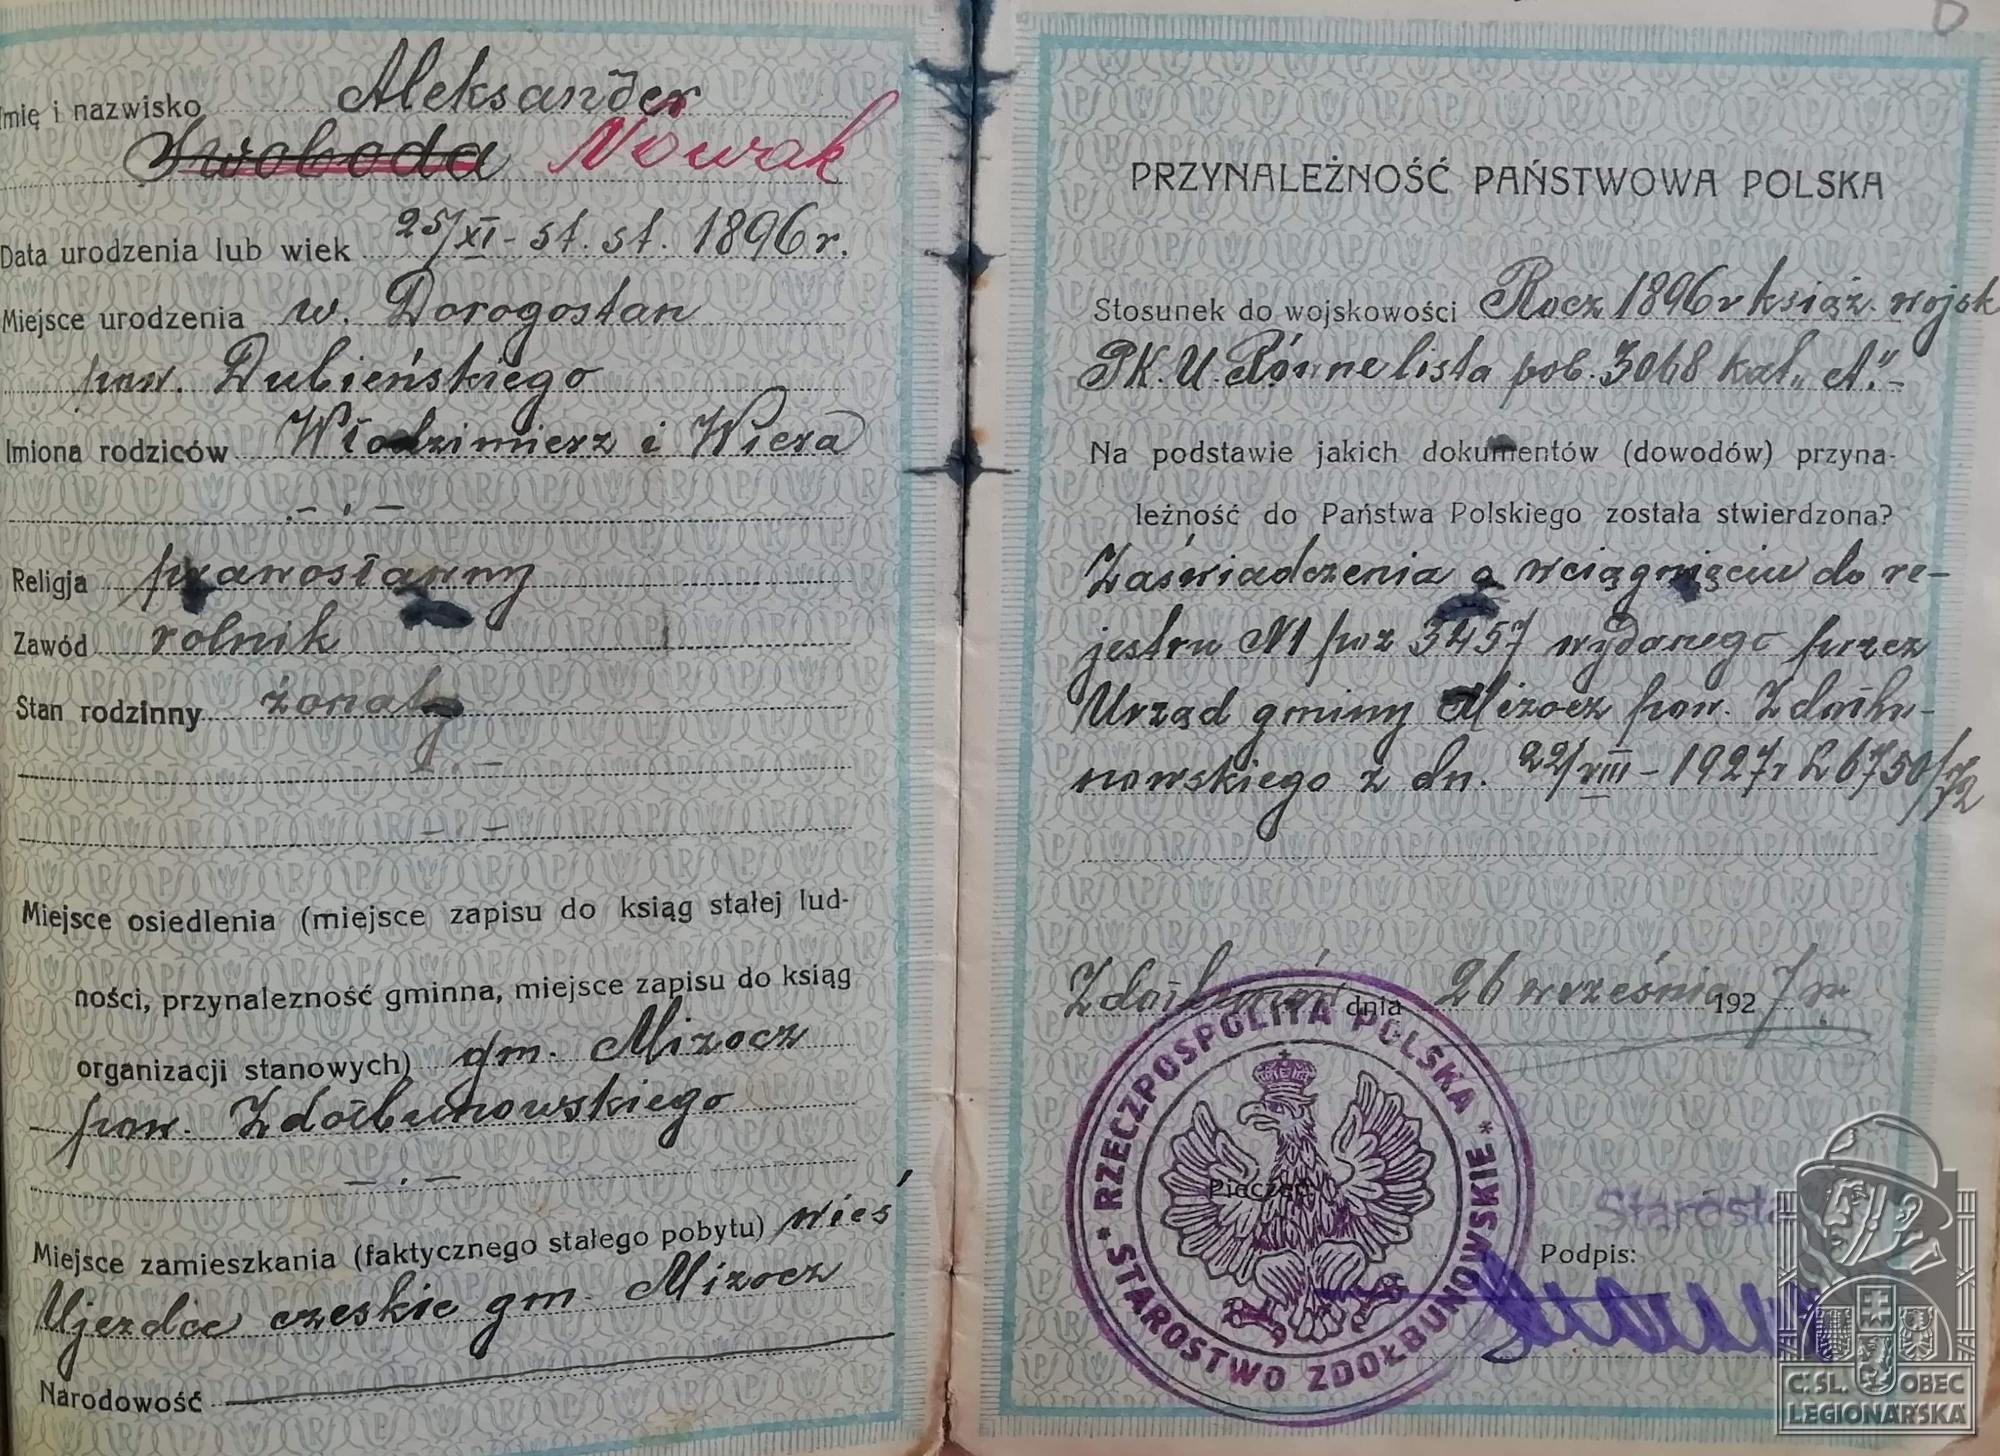 Imię i nazwisko Aleksander
Swoboda Nowak
Data urodzenia lub wiek 25/XI - st. st. 1896 r.
Miejsce urodzenia w. Dorogostan
pow. Dubieńskiego
Imiona rodziców Włodzimierz i Wiera
Religja prawosławny
Zawód rolnik
Stan rodzinny żonaty
Miejsce osiedlenia (miejsce zapisu do ksiąg stałej lud-
ności, przynalezność gminna, miejsce zapisu do ksiąg
organizacji stanowych) gm. Mizocz
pow. Zdołbunowskiego
Miejsce zamieszkania (faktycznego stałego pobytu) wieś
Ujezdce czeskie gm. Mizocz
Narodowość
PRZYNALEŻNOŚĆ PAŃSTWOWA POLSKA
Stosunek do wojskowości Rocz 1896 r książ. wojsk
P.K.U. Równe lista pob. 3068 kat „A".-
Na podstawie jakich dokumentów (dowodów) przyna-
leżność do Państwa Polskiego została stwierdzona?
Zaświadczenia o wciągnięciu do re-
jestru N1 poz 3457 wydanego przez
Urząd gminy Mizocz pow. Zdołbu-
nowskiego z dn. 22/VIII - 1927 r L 6750/72
Zdołbunów dnia 26 września 1927 r.
RZECZPOSPOLITA POLSKA
* STAROSTWO ZDOŁBUNOWSKIE *
Pieczęć
Starosta
Podpis:
Č. SL. OBEC
LEGIONÁŘSKÁ